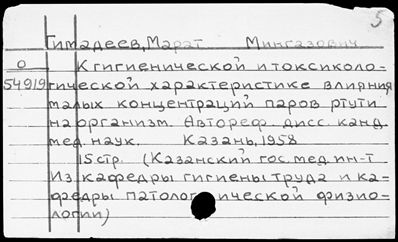 5
Гимадеев, Марат Мингазович
О К гигиенической и токсиколо-
54919 гической характеристике влияния
малых концентраций паров ртути
на организм. Автореф. дисс. канд.
мед. наук. Казань, 1958
15 стр. (Казанский гос. мед. ин-т
Из кафедры гигиены труда и ка-
федры патологической физио-
логии)